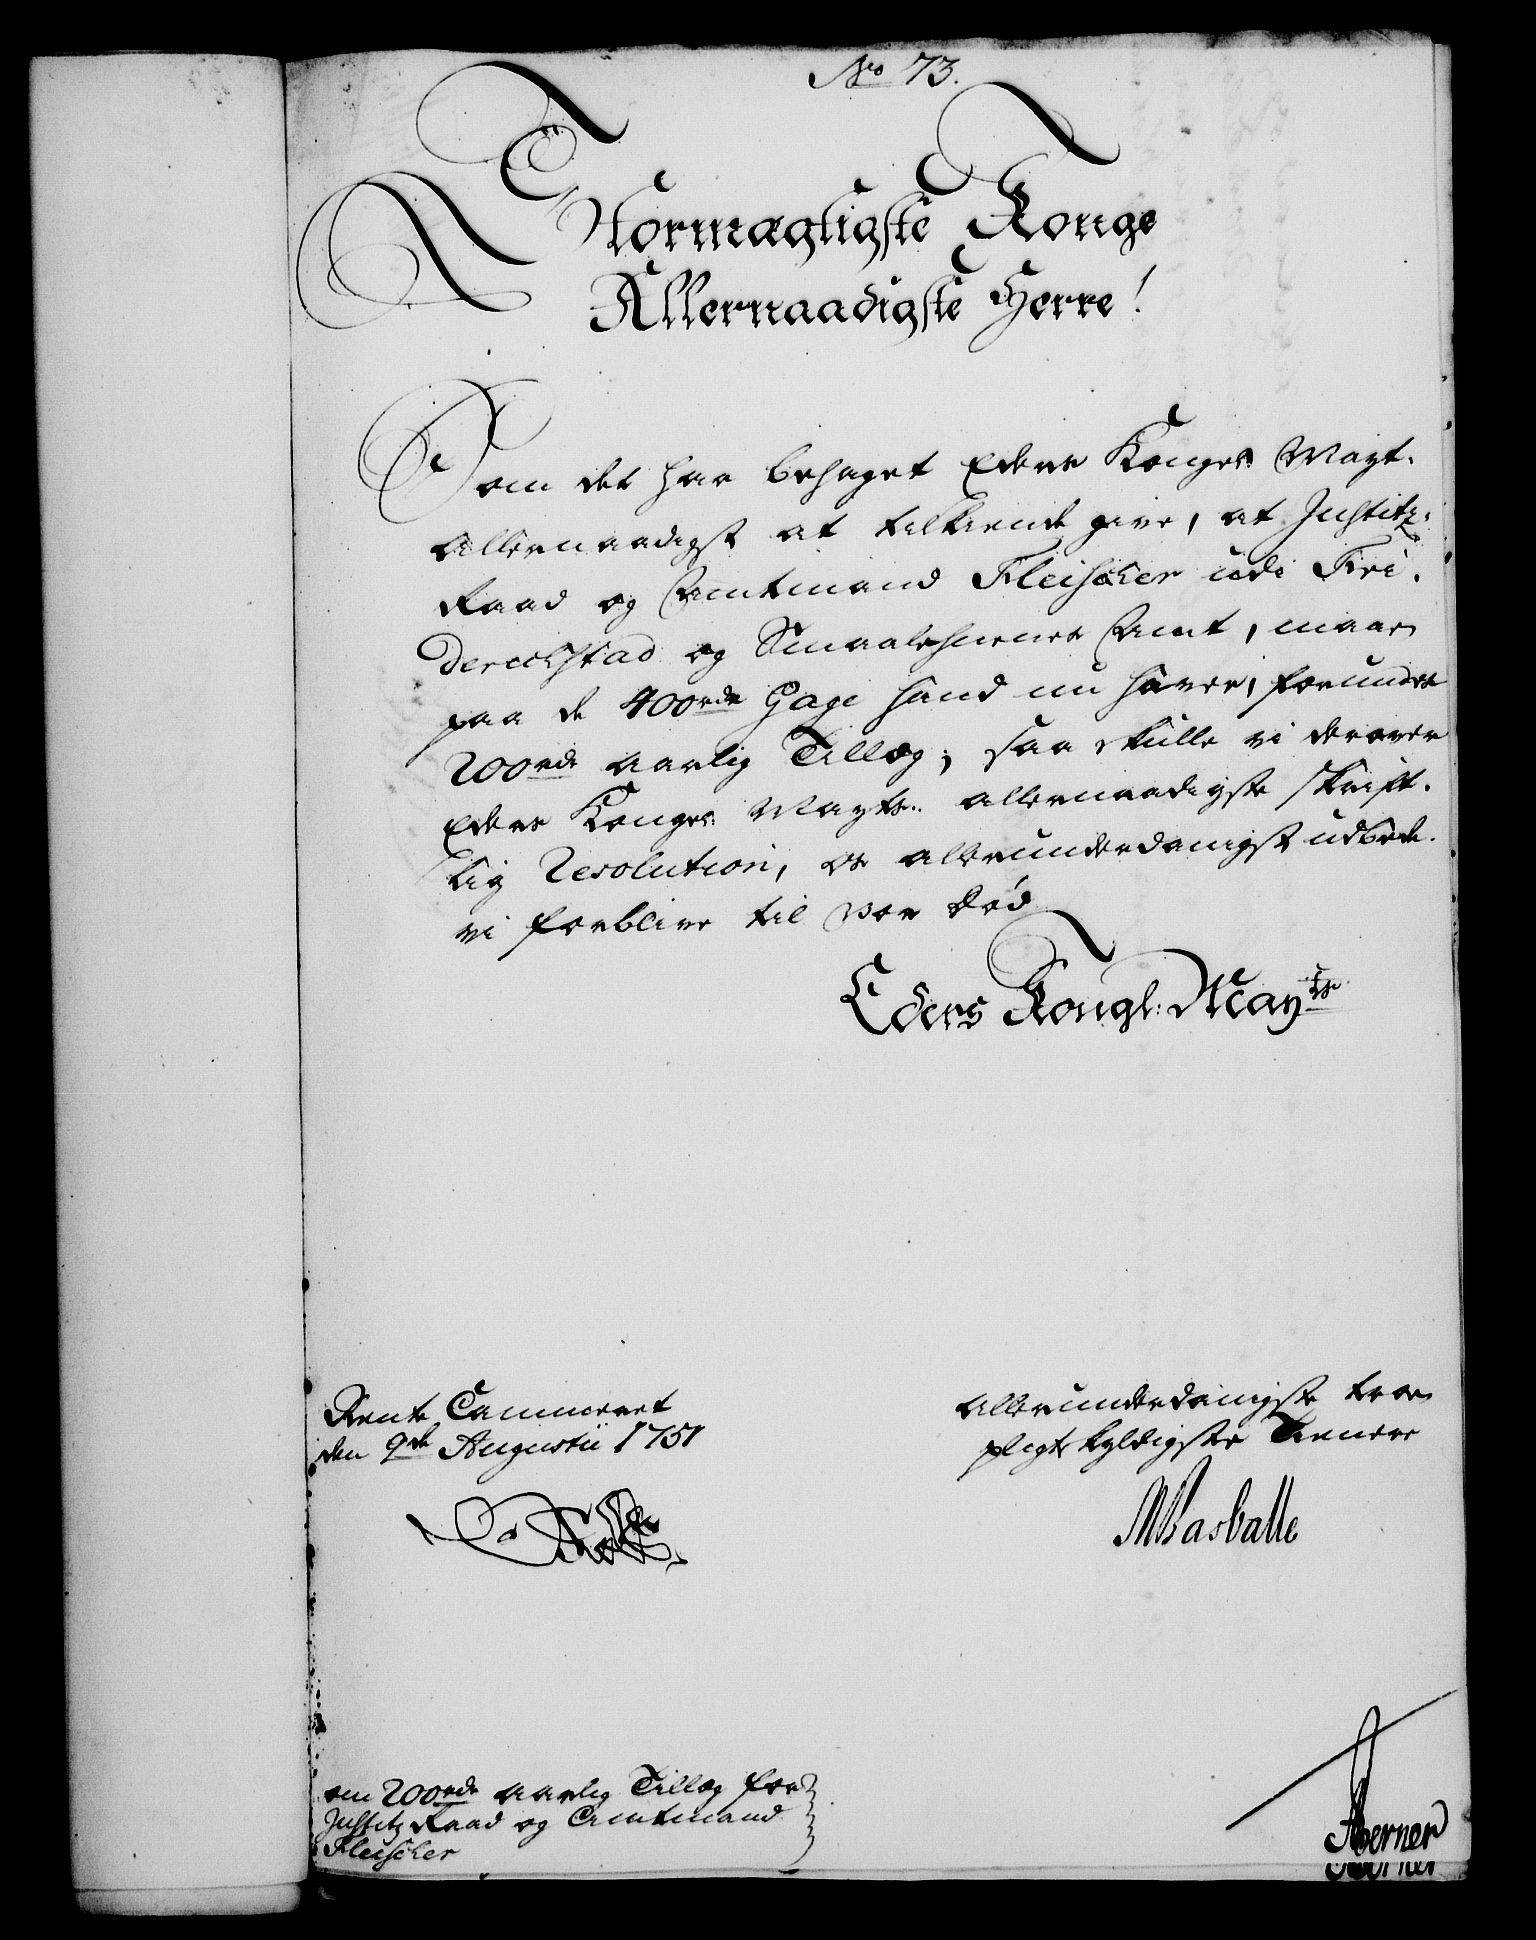 No 73.
Stormægtigste Konge
Allernaadigste Herre!
Som det har behaget Eders Konges Mayt.
allernaadigst at tilkiende give, at Justitz-
Raad og Amtmand Fleischer udi Fri-
derichstad og Smaalehnenes Amt, maae
paa de 400rdr Gage hand nu haver, forundes
200rdr aarlig Tillæg; saa skulle vi derover
Eders Konges Mayts. allernaadigste skrift-
lig Resolution, os allerunderdanigst udbede.
vi forblive til vor død
Eders Kongl: Mayts
Rente Cammeret
den 9de Augustii 1751
allerunderdanigste troe
pligtskyldigste Tienere
om 200rdr aarlig Tillæg for
Justitz Raad og Amtmand
Fleischer